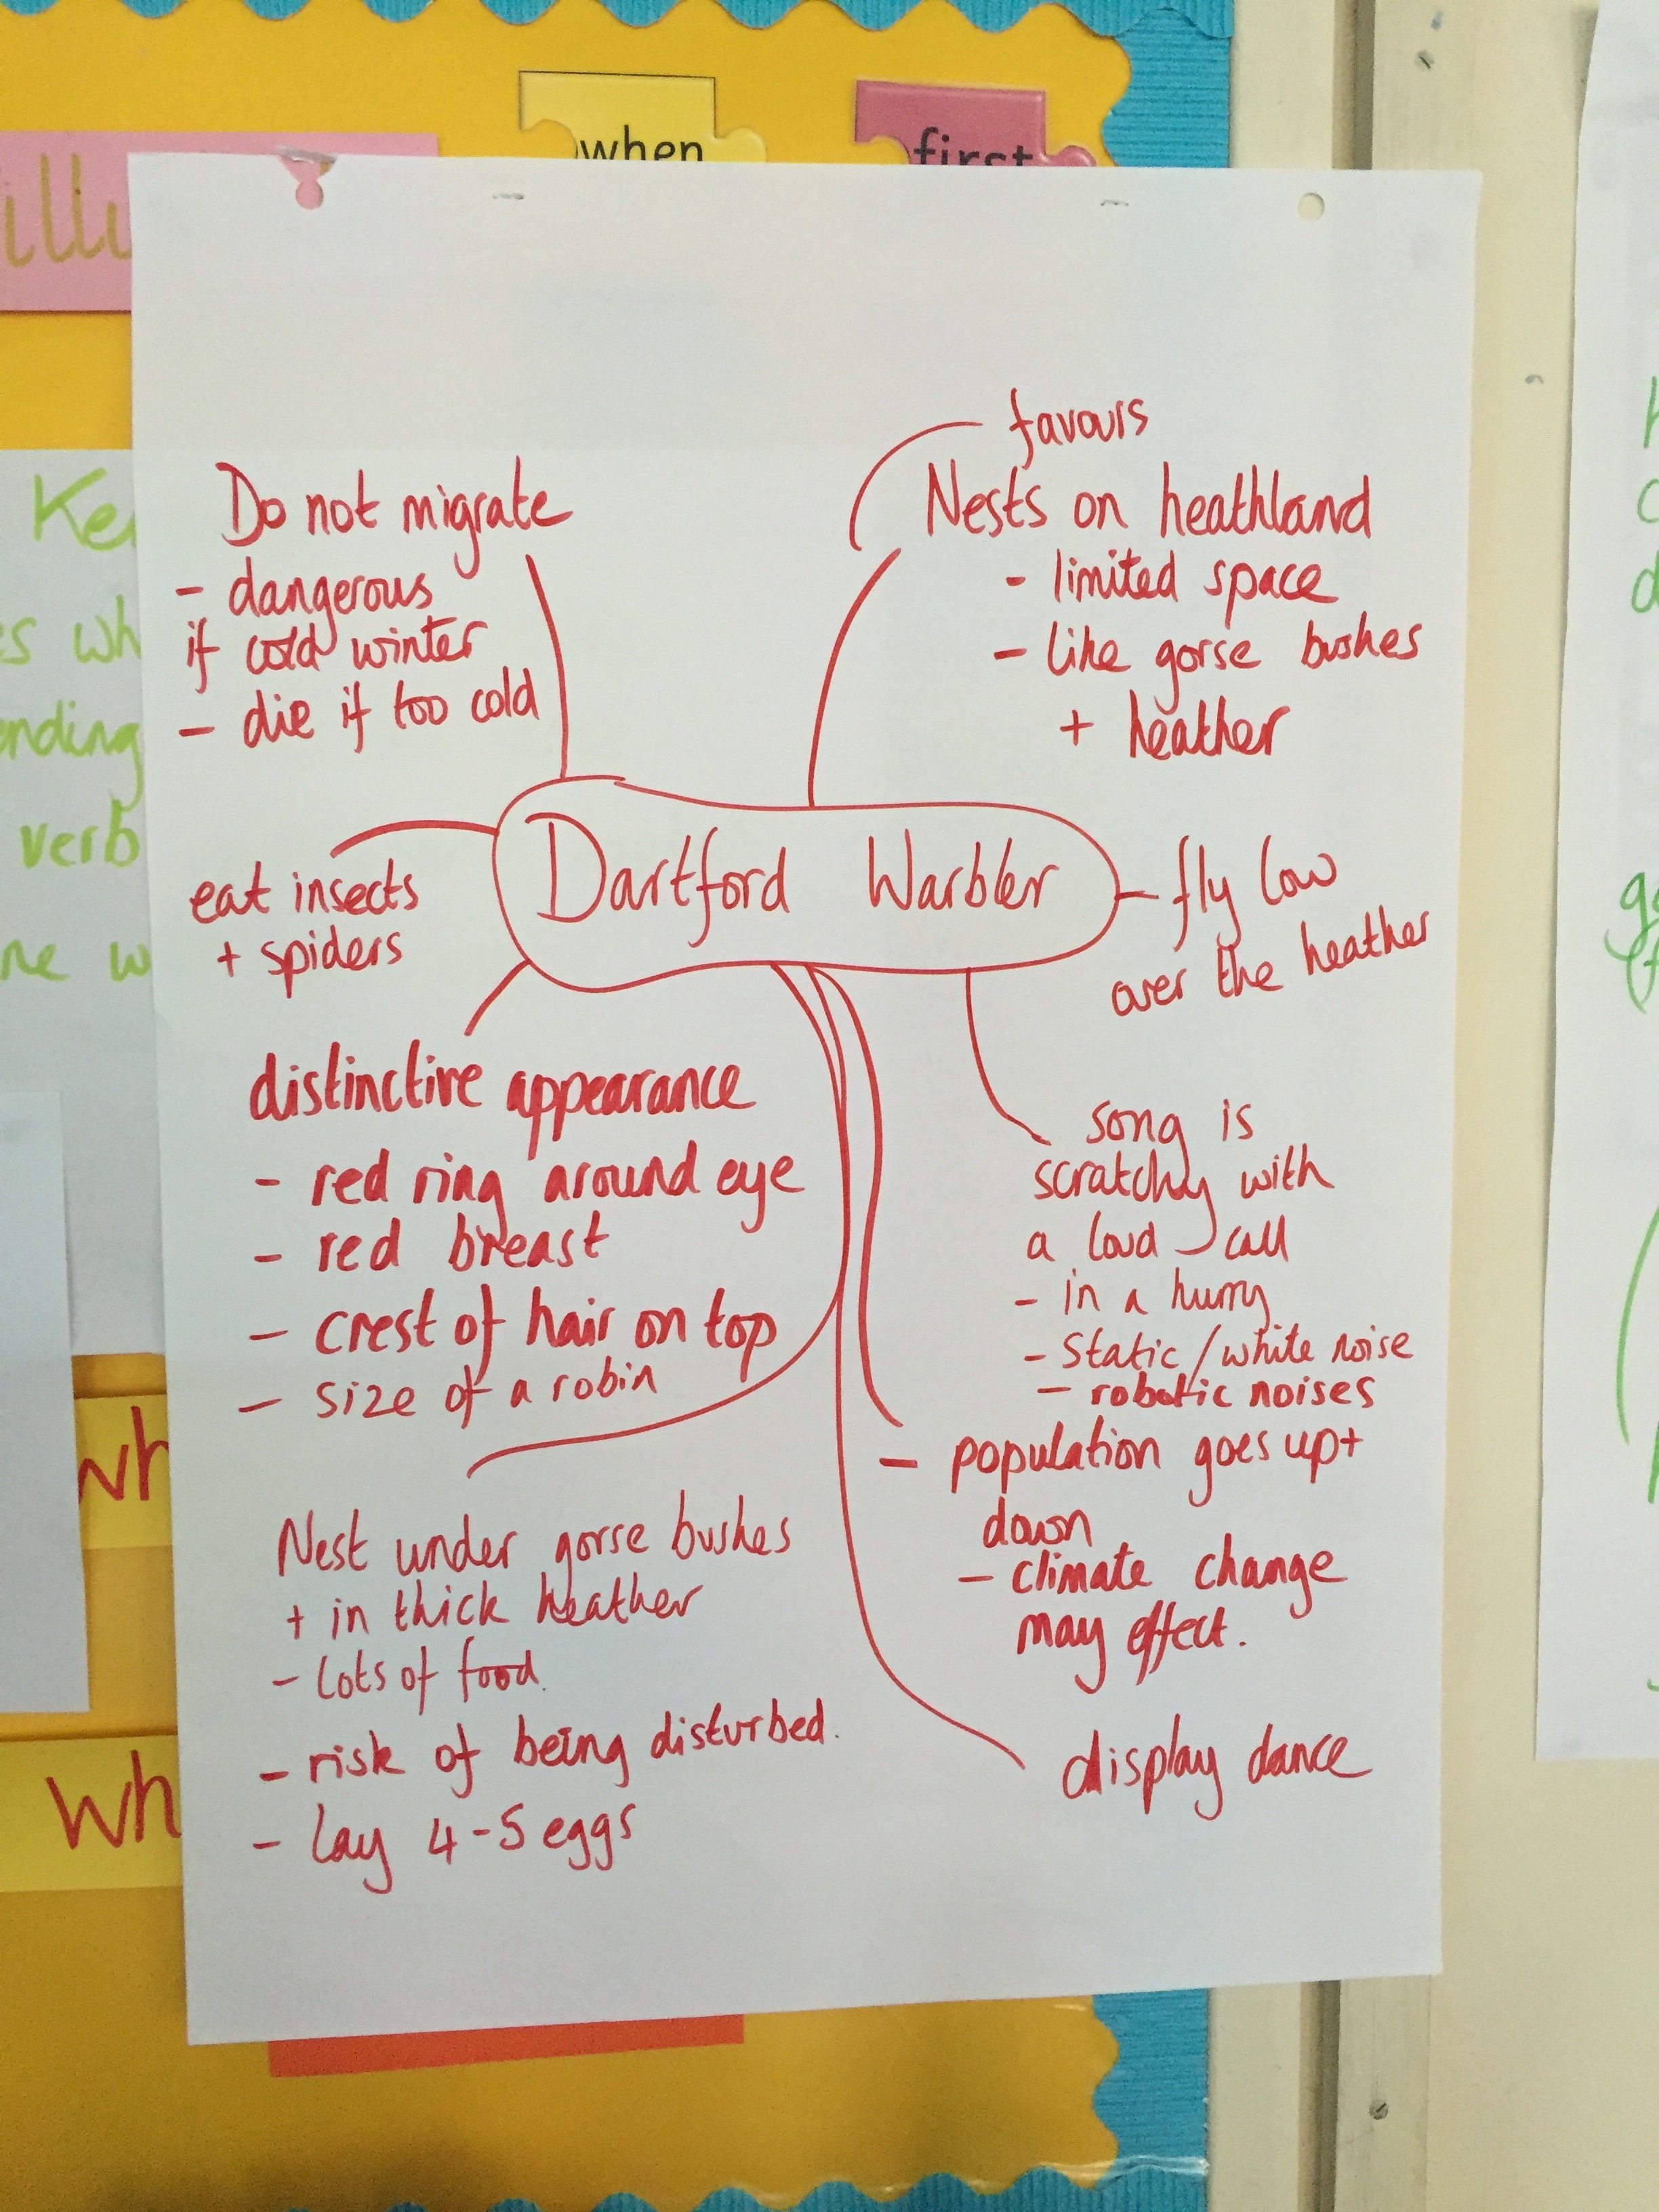 when
first
favours
Nests on heathland
- limited space
- like gorse bushes
+ heather
Do not migrate
- dangerous
if cold winter
- die if too cold
Dartford Warbler
eat insects
+ spiders
fly low
over the heather
distinctive appearance
- red ring around eye
- red breast
- crest of hair on top
- size of a robin
song is
scratchy with
a loud call
- in a hurry
- Static/white noise
- robotic noises
- population goes up+
down
- climate change
may effect.
Nest under gorse bushes
+ in thick heather
- Lots of food.
- risk of being disturbed.
- lay 4-5 eggs
display dance
verb